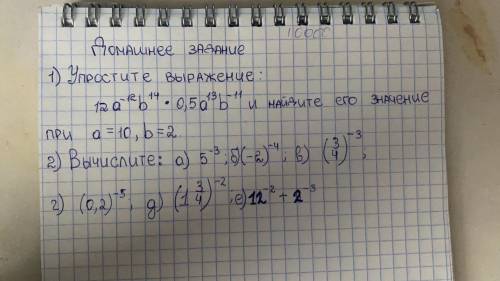 10000
Домашнее задание
1) Упростите выражение:
12a⁻¹²b¹⁴ • 0,5a¹³b⁻¹¹ и найдите его значение
при a=10, b=2.
2) Вычислите: а) 5⁻³; б) (-2)⁻⁴; в) (3/4)⁻³;
г) (0,2)⁻⁵; д) (1 3/4)⁻²; е) 12⁻² + 2⁻³